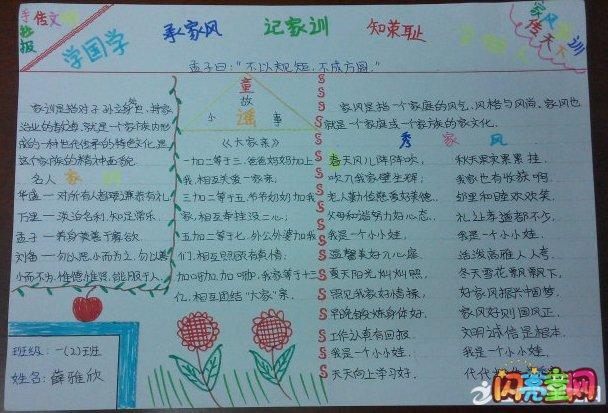 手抄报
传文
学国学
承家风
记家训
知荣耻
家风 训
传天
孟子曰："不以规矩,不成方圆."
家训是指对子孙立身处世,持家
治业的教诲,就是一个家族内形
成的一种世代传承的特色文化,是
这个家族的精神面貌.
名人家
华盛——对所有人都要谦恭有礼.
万里——淡泊名利,知足常乐.
孟子——养身莫善于寡欲.
刘备——勿以恶小而为之,勿以善
小而不为,惟德惟贤,能服于人.
班级：一(2)班
姓名：薛雅欣
童
故
小 谣 事
《大家亲》
一加二等于三,爸爸妈妈加上
我,相互关爱一家亲;
三加二等于五,爷爷奶奶加我
家,相互孝挂没二心;
五加二等于七,外公外婆加我
们,相互照顾有真情;
加呀加,加呀加,我家等于十三
亿,相互团结"大家"亲.
家风是指一个家庭的风气,风格与风尚,家风也
就是一个家庭或一个家族的家文化.
秀 家 风
春天风儿阵阵吹, 秋天果实累累挂,
吹入我家壁生辉; 我家也有收获啊.
老人勤俭慈善好美德, 邻里和睦欢欢笑,
父母和谐努力好心态. 礼让孝道都不少.
我是一个小小娃, 我是一个小小娃,
温馨美好入心庭. 活泼高雅人人夸.
夏天阳光灿灿照, 冬天雪花飘飘下,
照见我家好情操. 好家风振兴中国梦.
早晚锻炼身体好, 家风好则国风正,
工作认真有回报. 文明诚信是根本.
我是一个小小娃, 我是一个小小娃,
天天向上学习好. 代代
闪亮童网